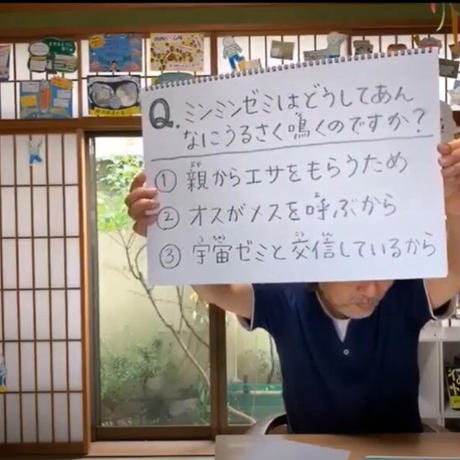 Q. ミンミンゼミはどうしてあん
なにうるさく鳴くのですか?
① 親からエサをもらうため
② オスがメスを呼ぶから
③ 宇宙ゼミと交信しているから